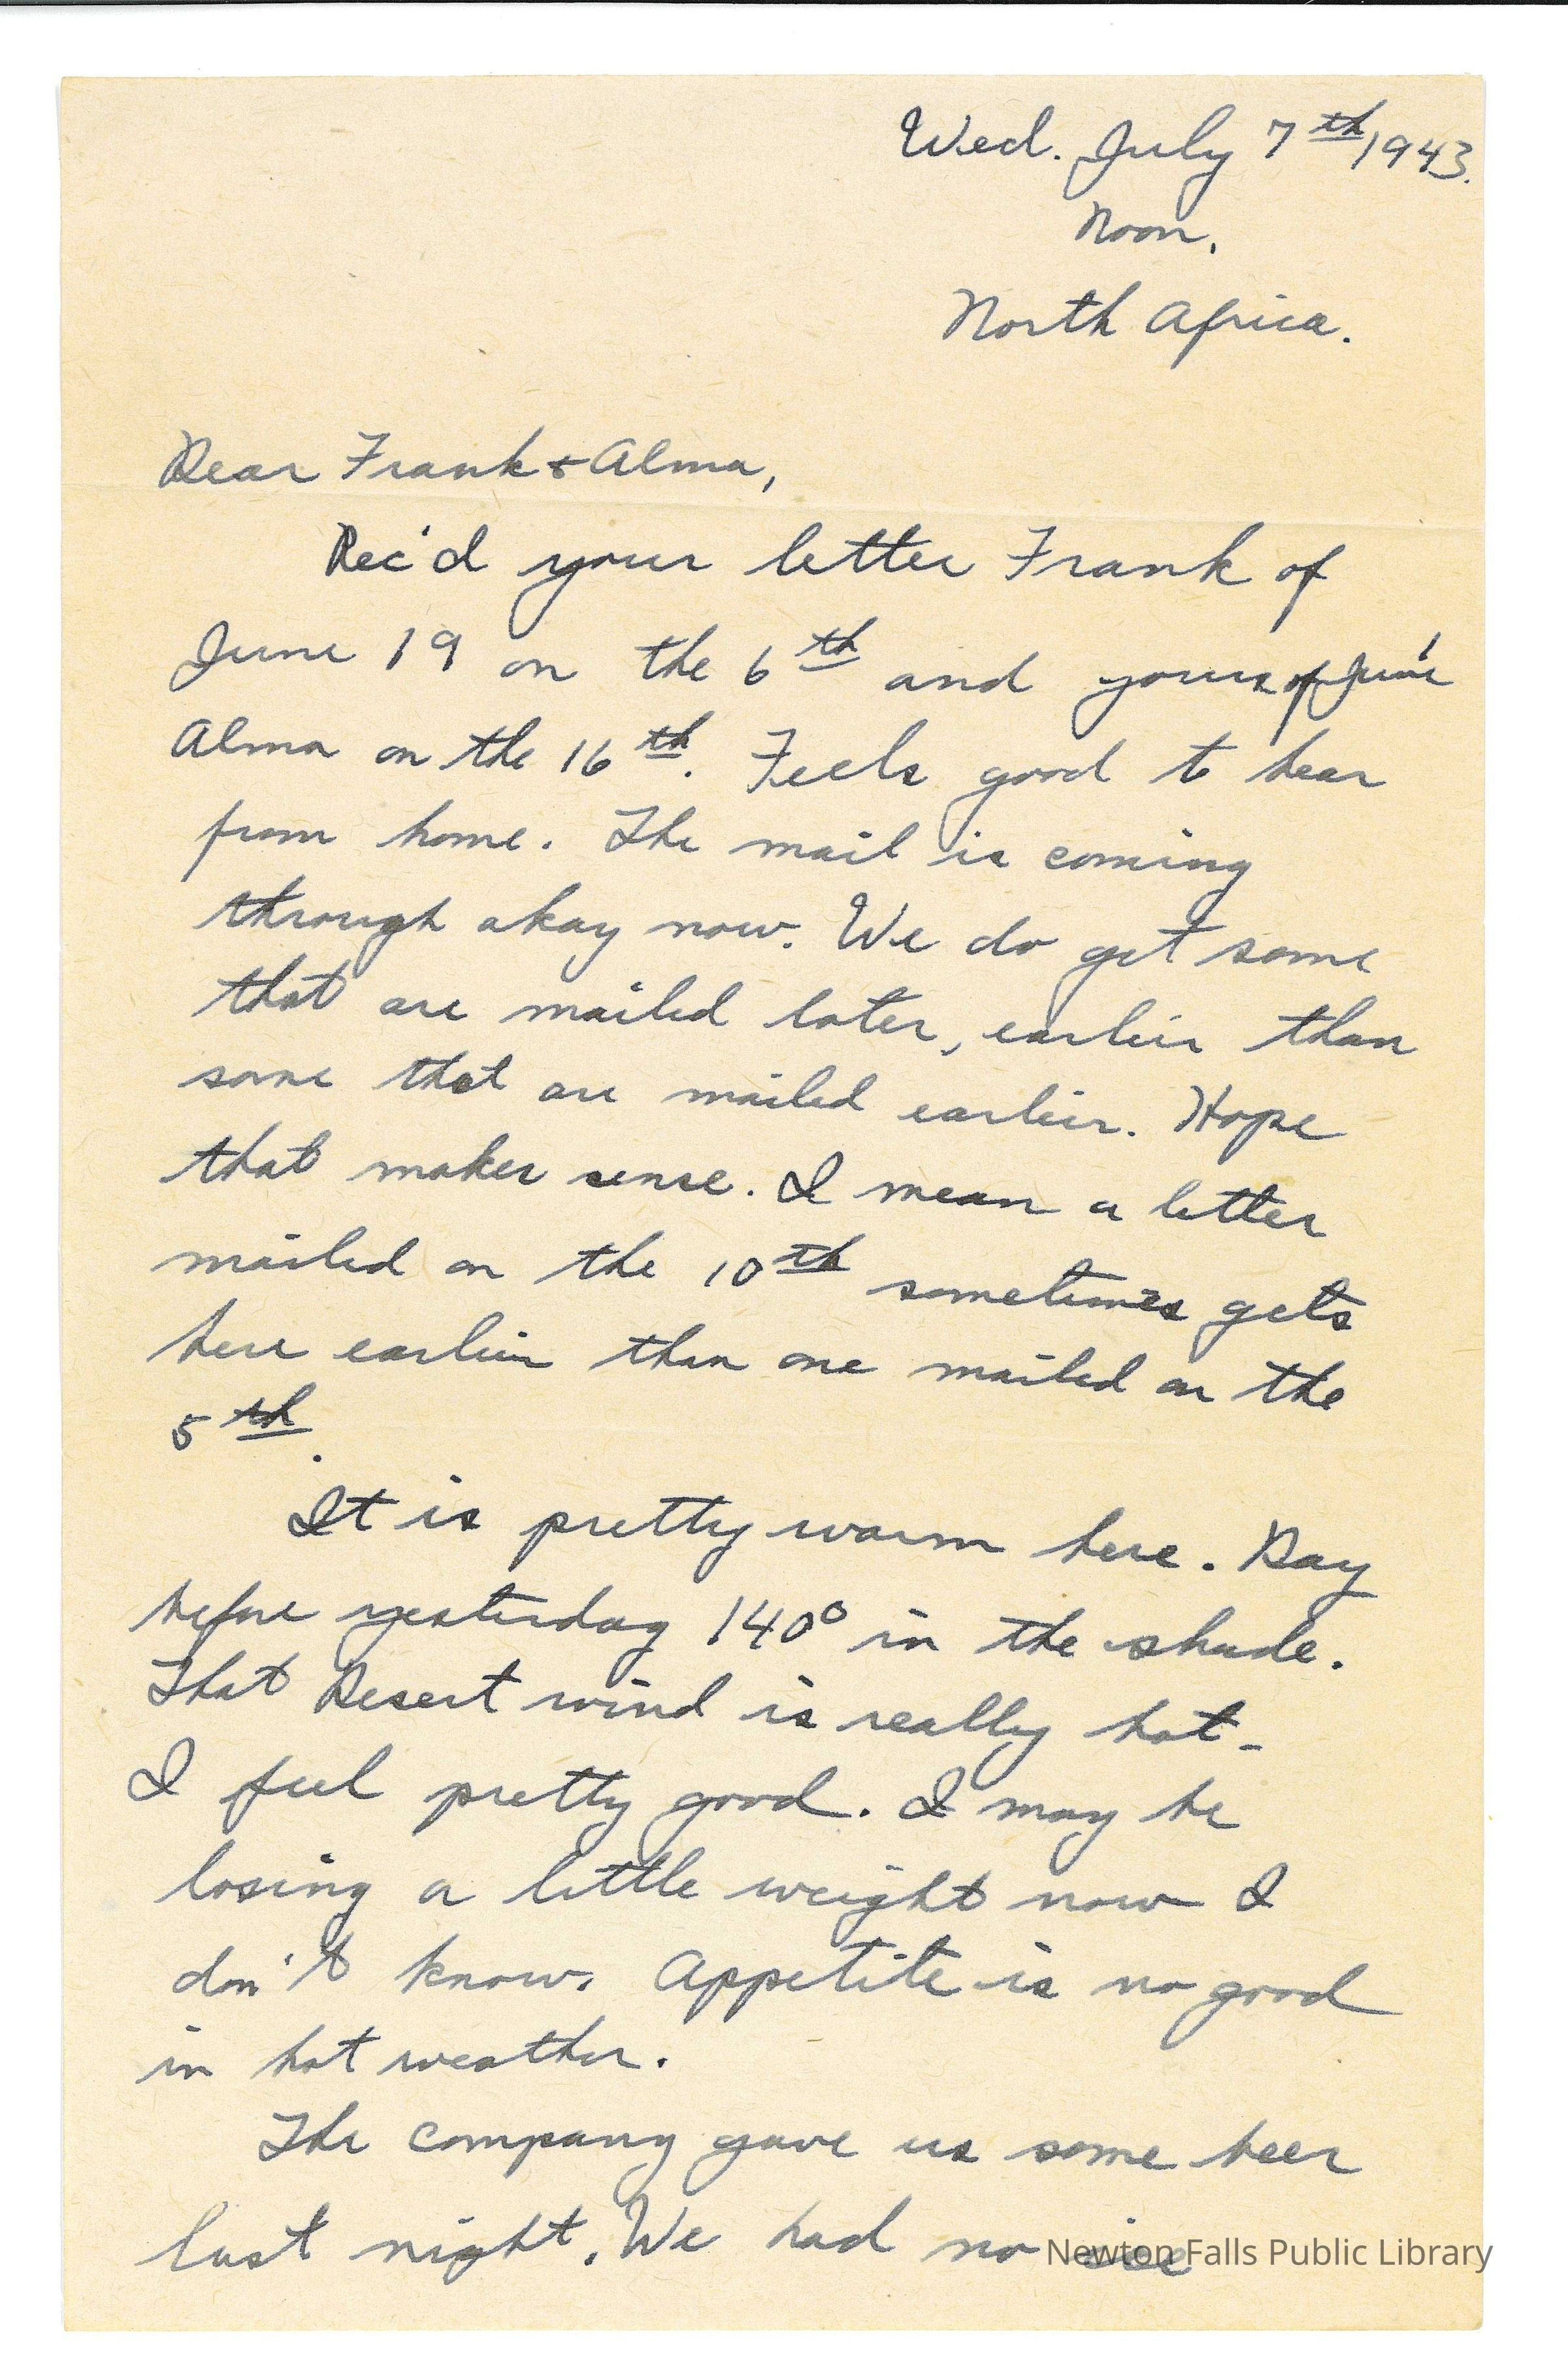 Wed. July 7th, 1943.
Noon.
North Africa.
Dear Frank & Alma,
Rec'd your letter Frank of
June 19 on the 6th and yours of June 1
Alma on the 16th. Feels good to hear
from home. The mail is coming
through okay now. We do get some
that are mailed later, earlier than
some that are mailed earlier. Hope
that makes sense. I mean a letter
mailed on the 10th sometimes gets
here earlier than one mailed on the
5th.
It is pretty warm here. Day
before yesterday 140° in the shade.
That Desert wind is really hot-
I feel pretty good. I may be
losing a little weight now I
don't know. Appetite is no good
in hot weather.
The company gave us some beer
last night. We had no ice
Newton Falls Public Library